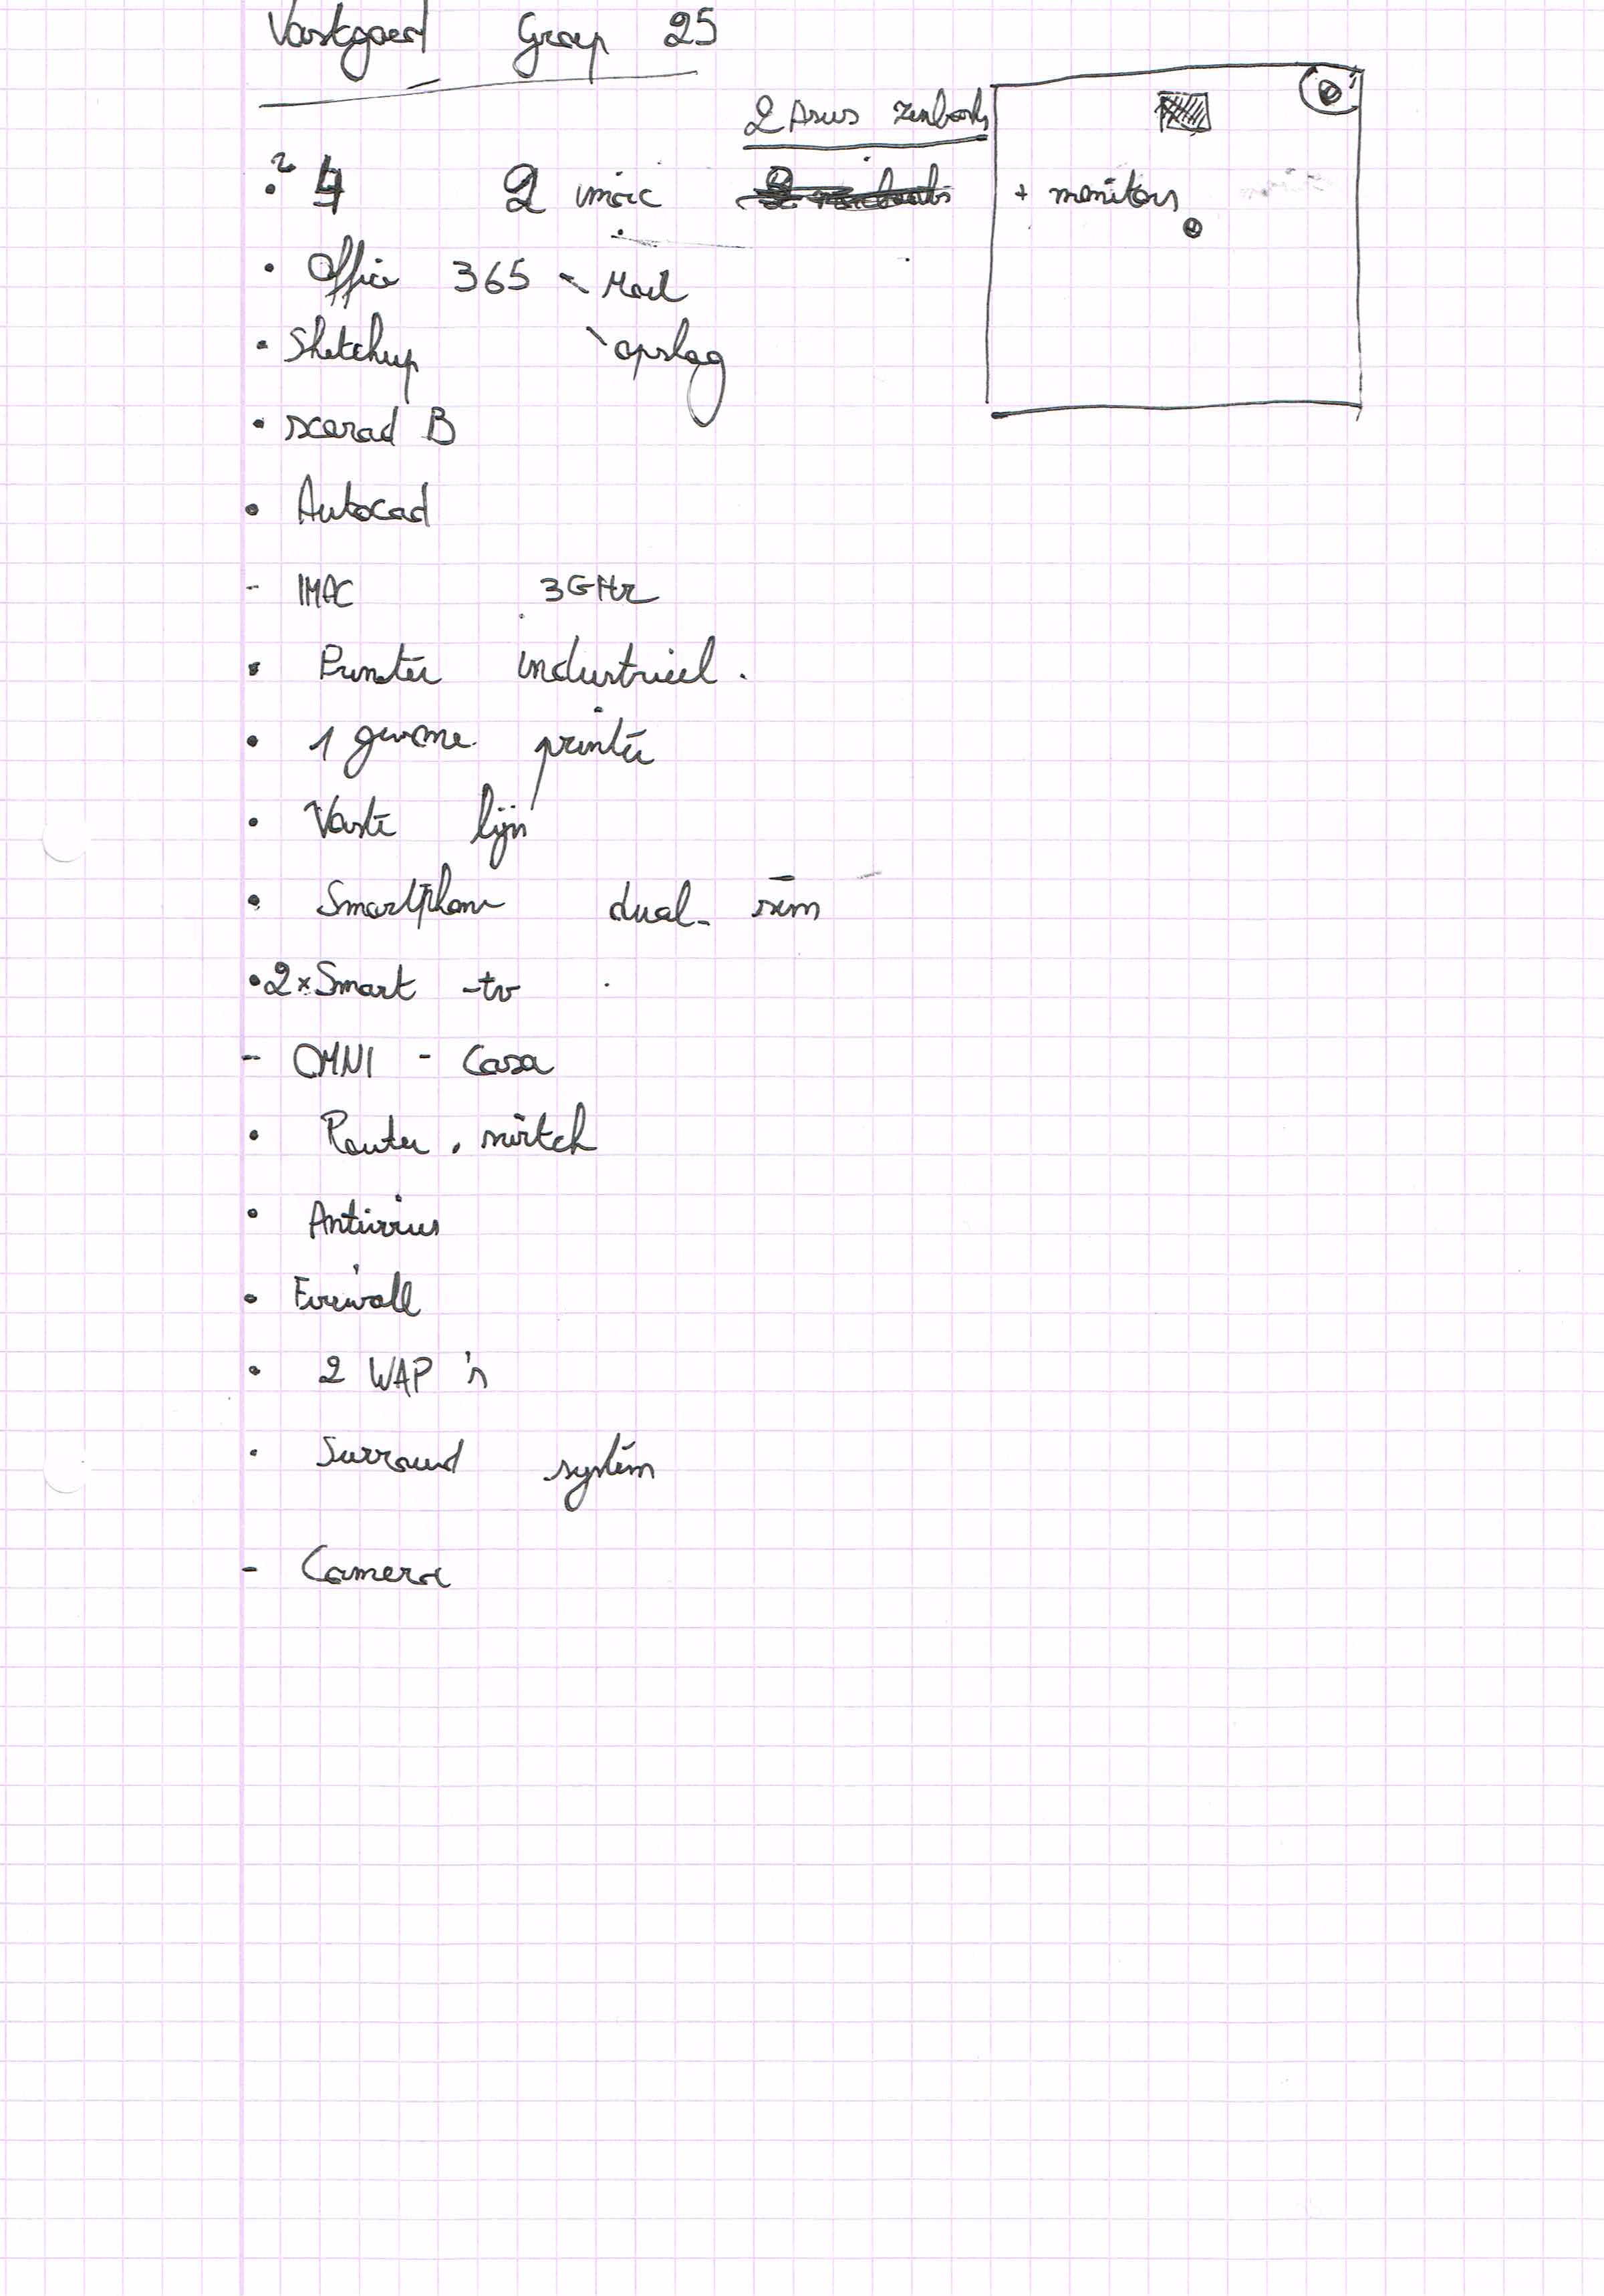 Vastgoed Groep 25
2 Asus zenbooks
• 4 2 imac + monitors
• Office 365 - Mail
• Sketchup - opslag
• B
• Autocad
- IMAC 3GHz
• Printer industrieel.
• 1 gewone printer
• Vaste lijn
• Smartphone dual-sim
• 2x Smart -tv
- OMNI - Casa
• Router, switch
• Antivirus
• Firewall
• 2 WAP's
• Surround system
- Camera